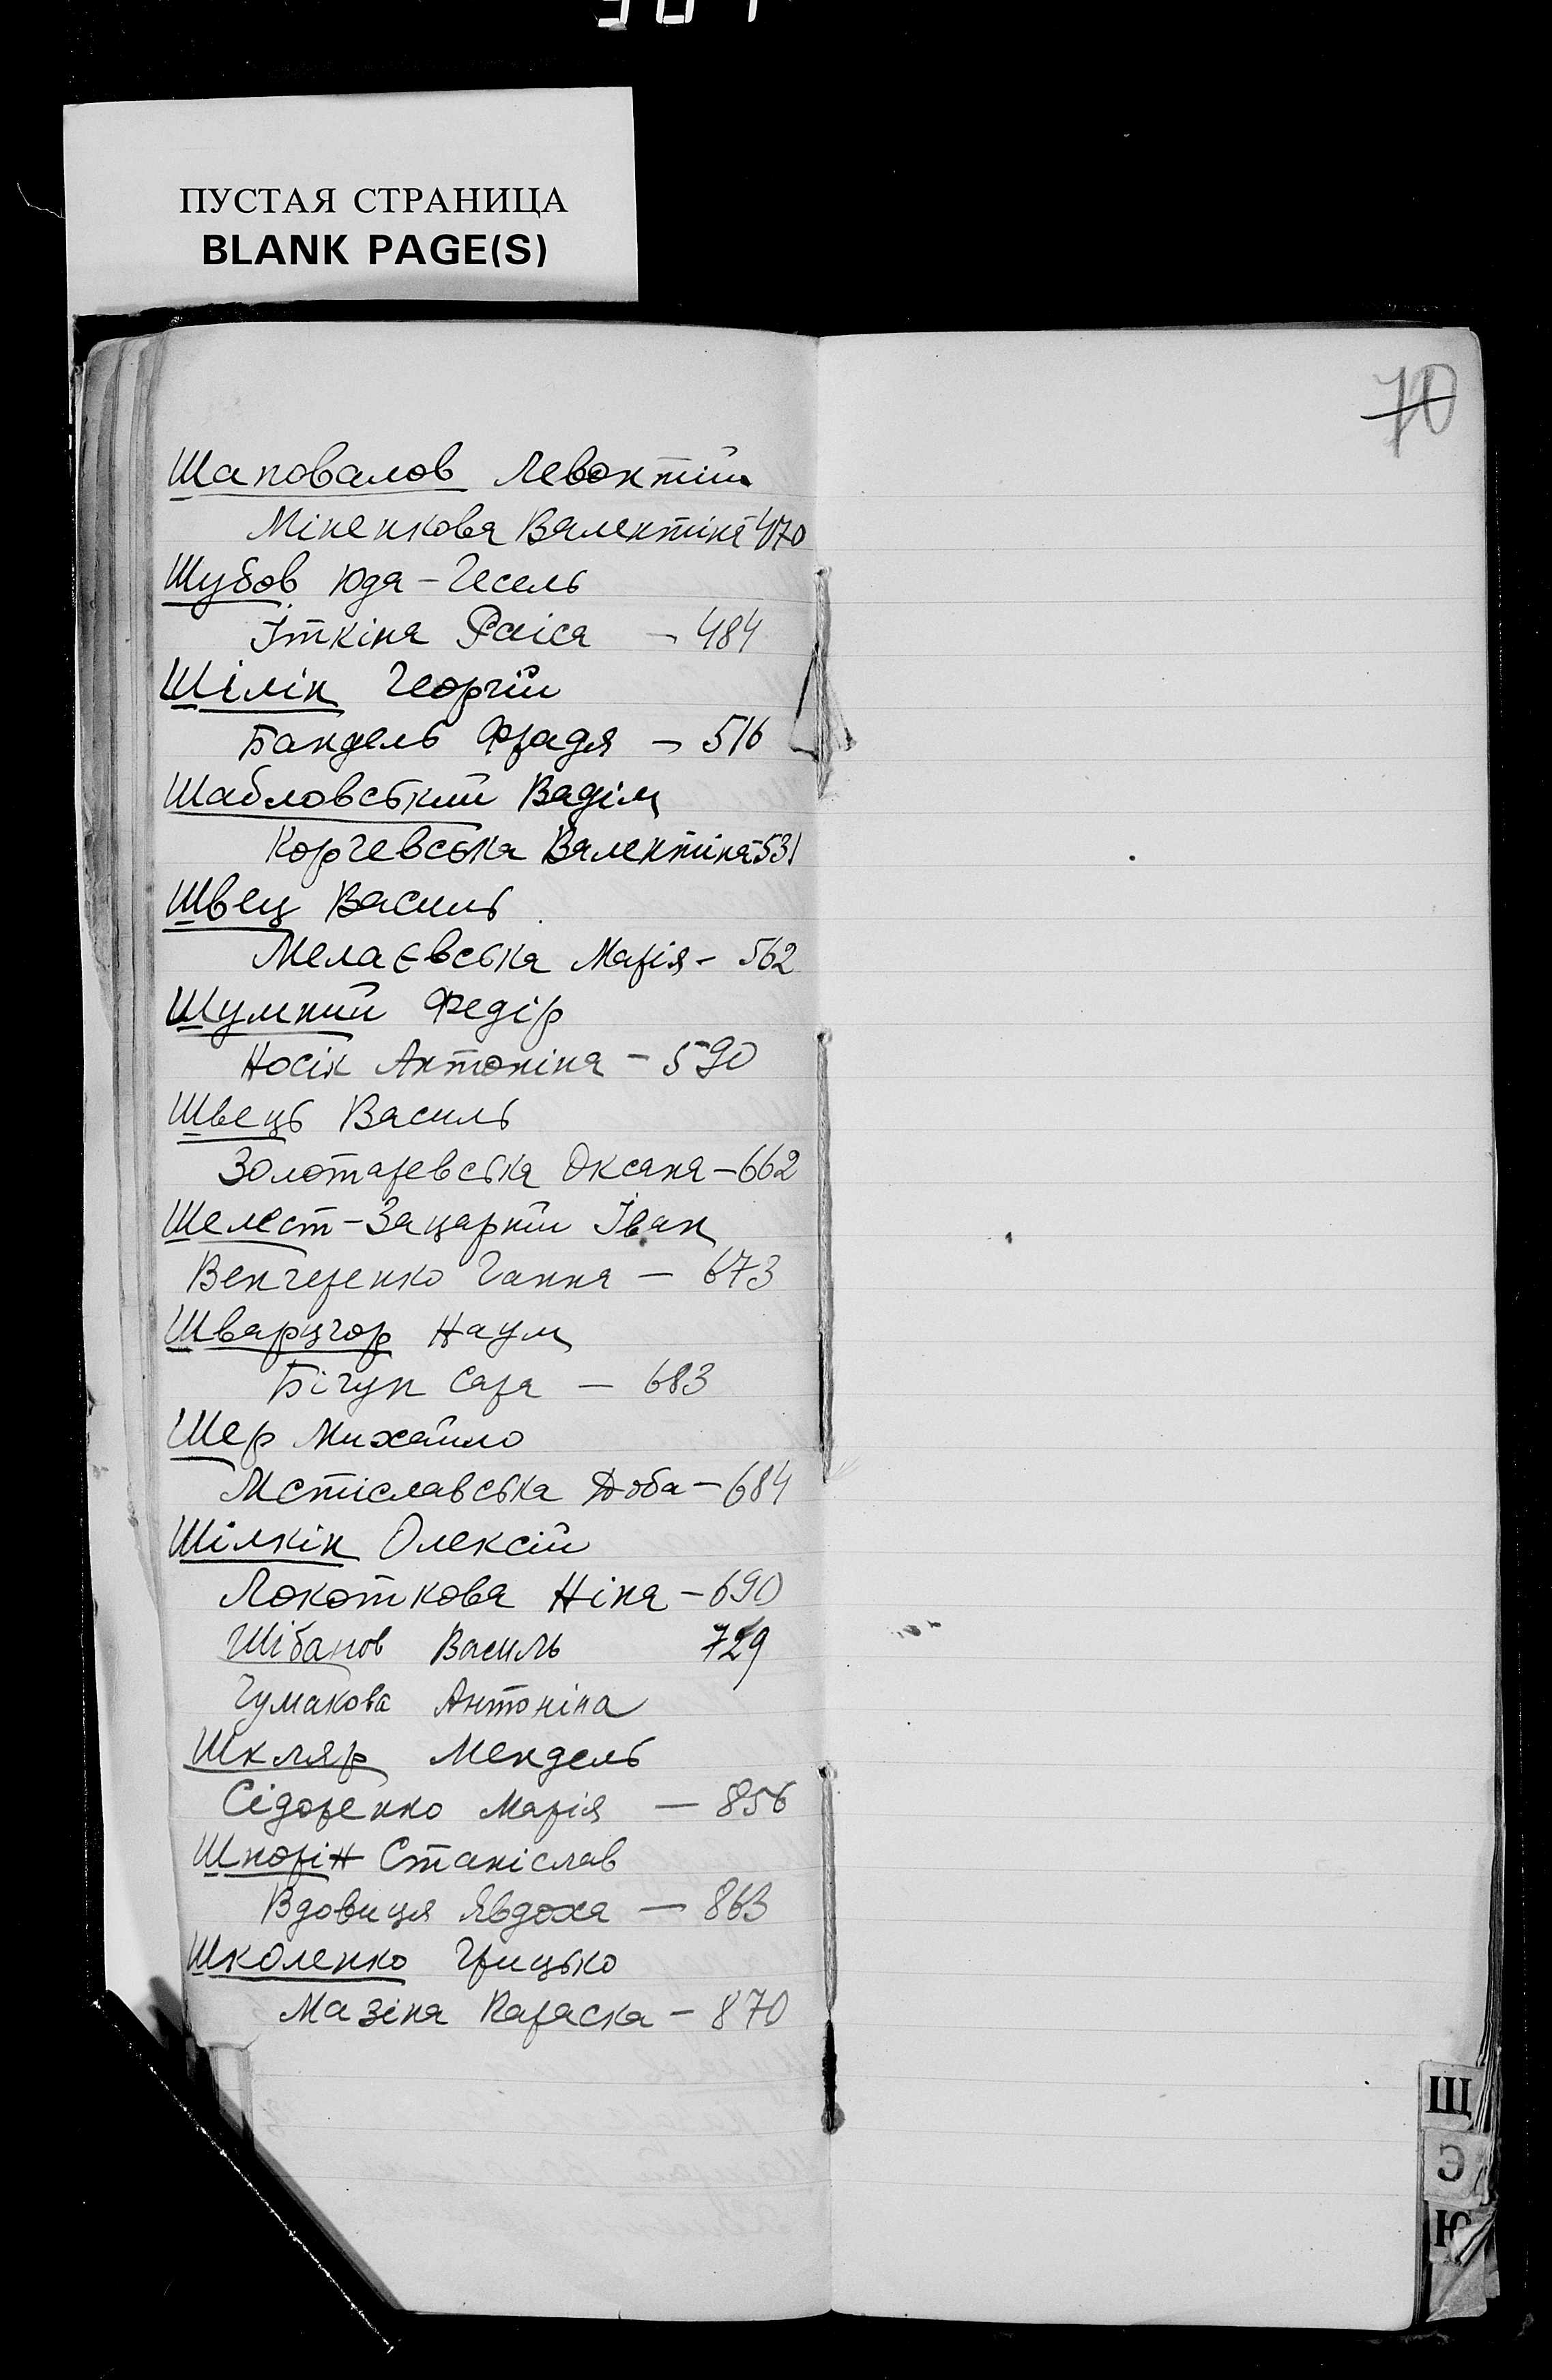 ПУСТАЯ СТРАНИЦА
BLANK PAGE(S)
70
Шаповалов Левонтій
Міненкова Валентіна-470
Шубов Юда-Гесель
Іткіна Раіса - 484
Шілін Георгій
Бандель Фрадя - 516
Шабловський Вадім
Корчевська Валентіна-531
Швец Василь
Мелаєвська Марія - 562
Шумний Федір
Носік Антоніна - 590
Швець Василь
Золотаревська Оксана - 662
Шелест-Зацарній Іван
Венгеренко Ганна - 673
Шварцгор Наум
Бігун Сара - 683
Шер Михайло
Мстіславська Доба - 684
Шілкін Олексій
Локоткова Ніна - 690
Шібанов Василь 729
Чумакова Антоніна
Шкляр Мендель
Сідоренко Марія - 856
Шпорін Станіслав
Вдовиця Явдоха - 863
Школенко Грицько
Мазіна Параска - 870
Щ
Э
Ю